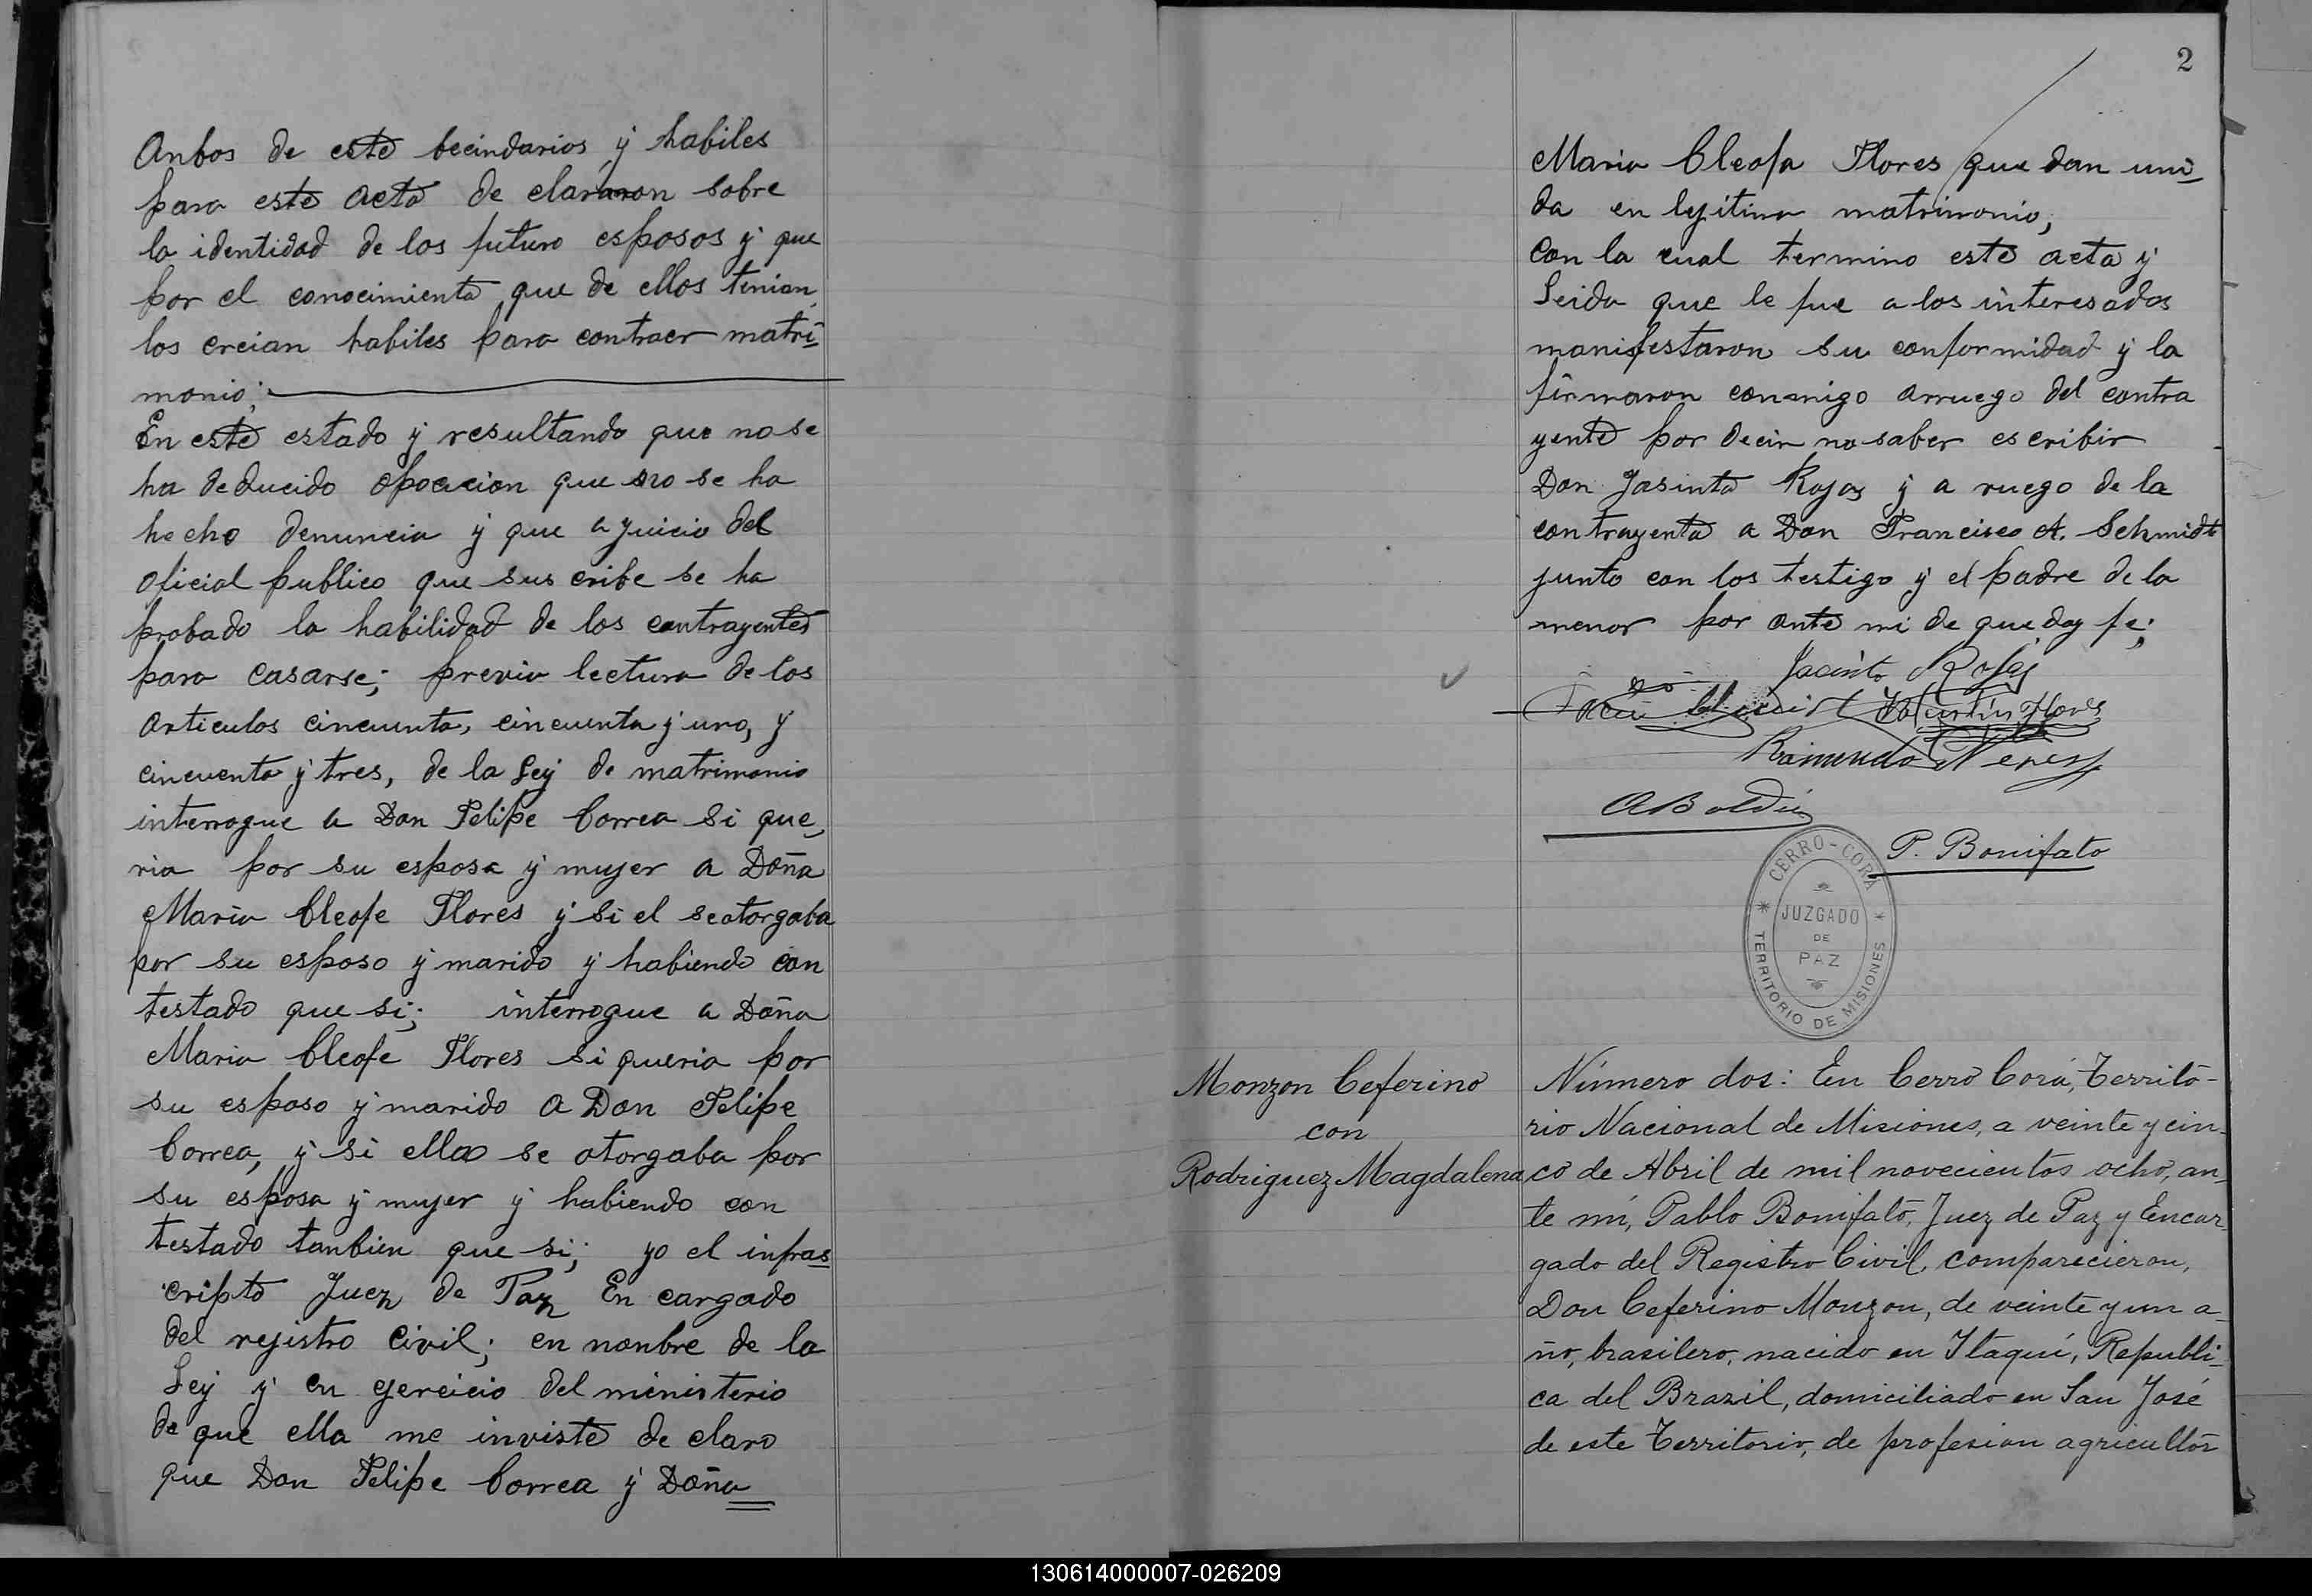 Anbos de este becindarios y habiles
para este acto de clararon sobre
la identidad de los futuro esposos y que
por el conocimiento que de ellos tenian
los creian habiles para contraer matri-
monio;
En este estado y resultando que no se
ha deducido oposicion que no se ha
hecho denuncia y que a juicio del
oficial publico que sus cribe se ha
probado la habilidad de los contrayentes
para casarse; previa lectura de los
articulos cincuenta, cincuenta y uno, y
cincuenta y tres, de la Ley de matrimonio
interrogue a Don Felipe Correa si que-
ria por su esposa y mujer a Doña
Maria Cleofe Flores y si el se otorgaba
por su esposo y marido y habiendo con
testado que si; interrogue a Doña
Maria Cleofe Flores si queria por
su esposo y marido a Don Felipe
Correa, y si ella se otorgaba por
su esposa y mujer y habiendo con
testado tanbien que si; yo el infras
cripto Juez de Paz En cargado
del rejistro Civil; en nonbre de la
Ley y en ejercicio del ministerio
de que ella me inviste de claro
que Don Felipe Correa y Doña
2
Maria Cleofa Flores que dan uni-
da en lejitimo matrimonio;
Con la cual termino este acta y
Leida que le fue a los interesados
manifestaron su conformidad y la
firmaron conmigo arruego del contra
yente por decir no saber escribir
Don Jasinto Rojas y a ruego de la
contrayenta a Don Francisco A. Schmidt
junto con los testigo y el padre de la
menor por ante mi de que doy fe;
Jacinto Rojas
Martin Flores
Raimundo Neres
A Boldú
P. Bonifato
CERRO-CORÁ
JUZGADO
DE
PAZ
TERRITORIO DE MISIONES
Monzon Ceferino
con
Rodriguez Magdalena
Número dos: En Cerro Corá, Territo-
rio Nacional de Misiones, a veinte y cin-
co de Abril de mil novecientos ocho, an-
te mi, Pablo Bonifato, Juez de Paz y Encar-
gado del Registro Civil, comparecieron,
Don Ceferino Monzon, de veinte y un a-
ño, brasilero, nacido en Itaquí, Republi-
ca del Brazil, domiciliado en San José
de este Territorio, de profesion agricultor
130614000007-026209